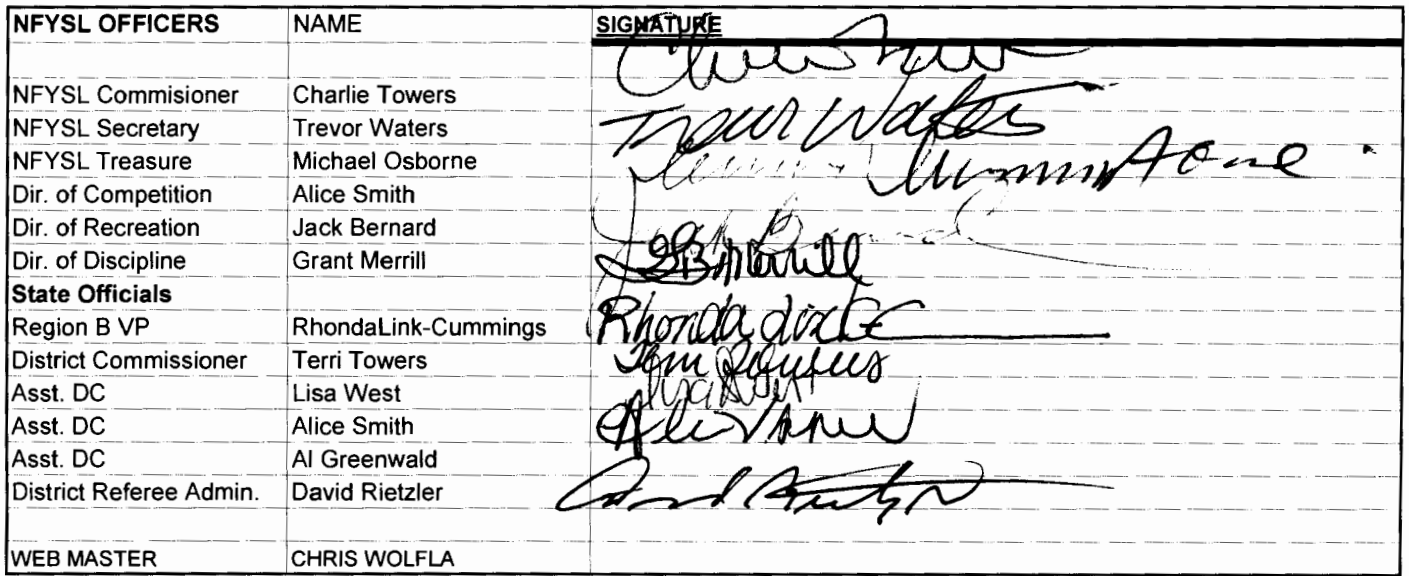 NFYSL OFFICERS NAME SIGNATURE
NFYSL Commisioner Charlie Towers
NFYSL Secretary Trevor Waters Trevor Waters
NFYSL Treasure Michael Osborne
Dir. of Competition Alice Smith
Dir. of Recreation Jack Bernard Jack Bernard
Dir. of Discipline Grant Merrill GB Merrill
State Officials
Region B VP RhondaLink-Cummings Rhonda Link C
District Commissioner Terri Towers
Asst. DC Lisa West Lisa West
Asst. DC Alice Smith
Asst. DC Al Greenwald
District Referee Admin. David Rietzler
WEB MASTER CHRIS WOLFLA